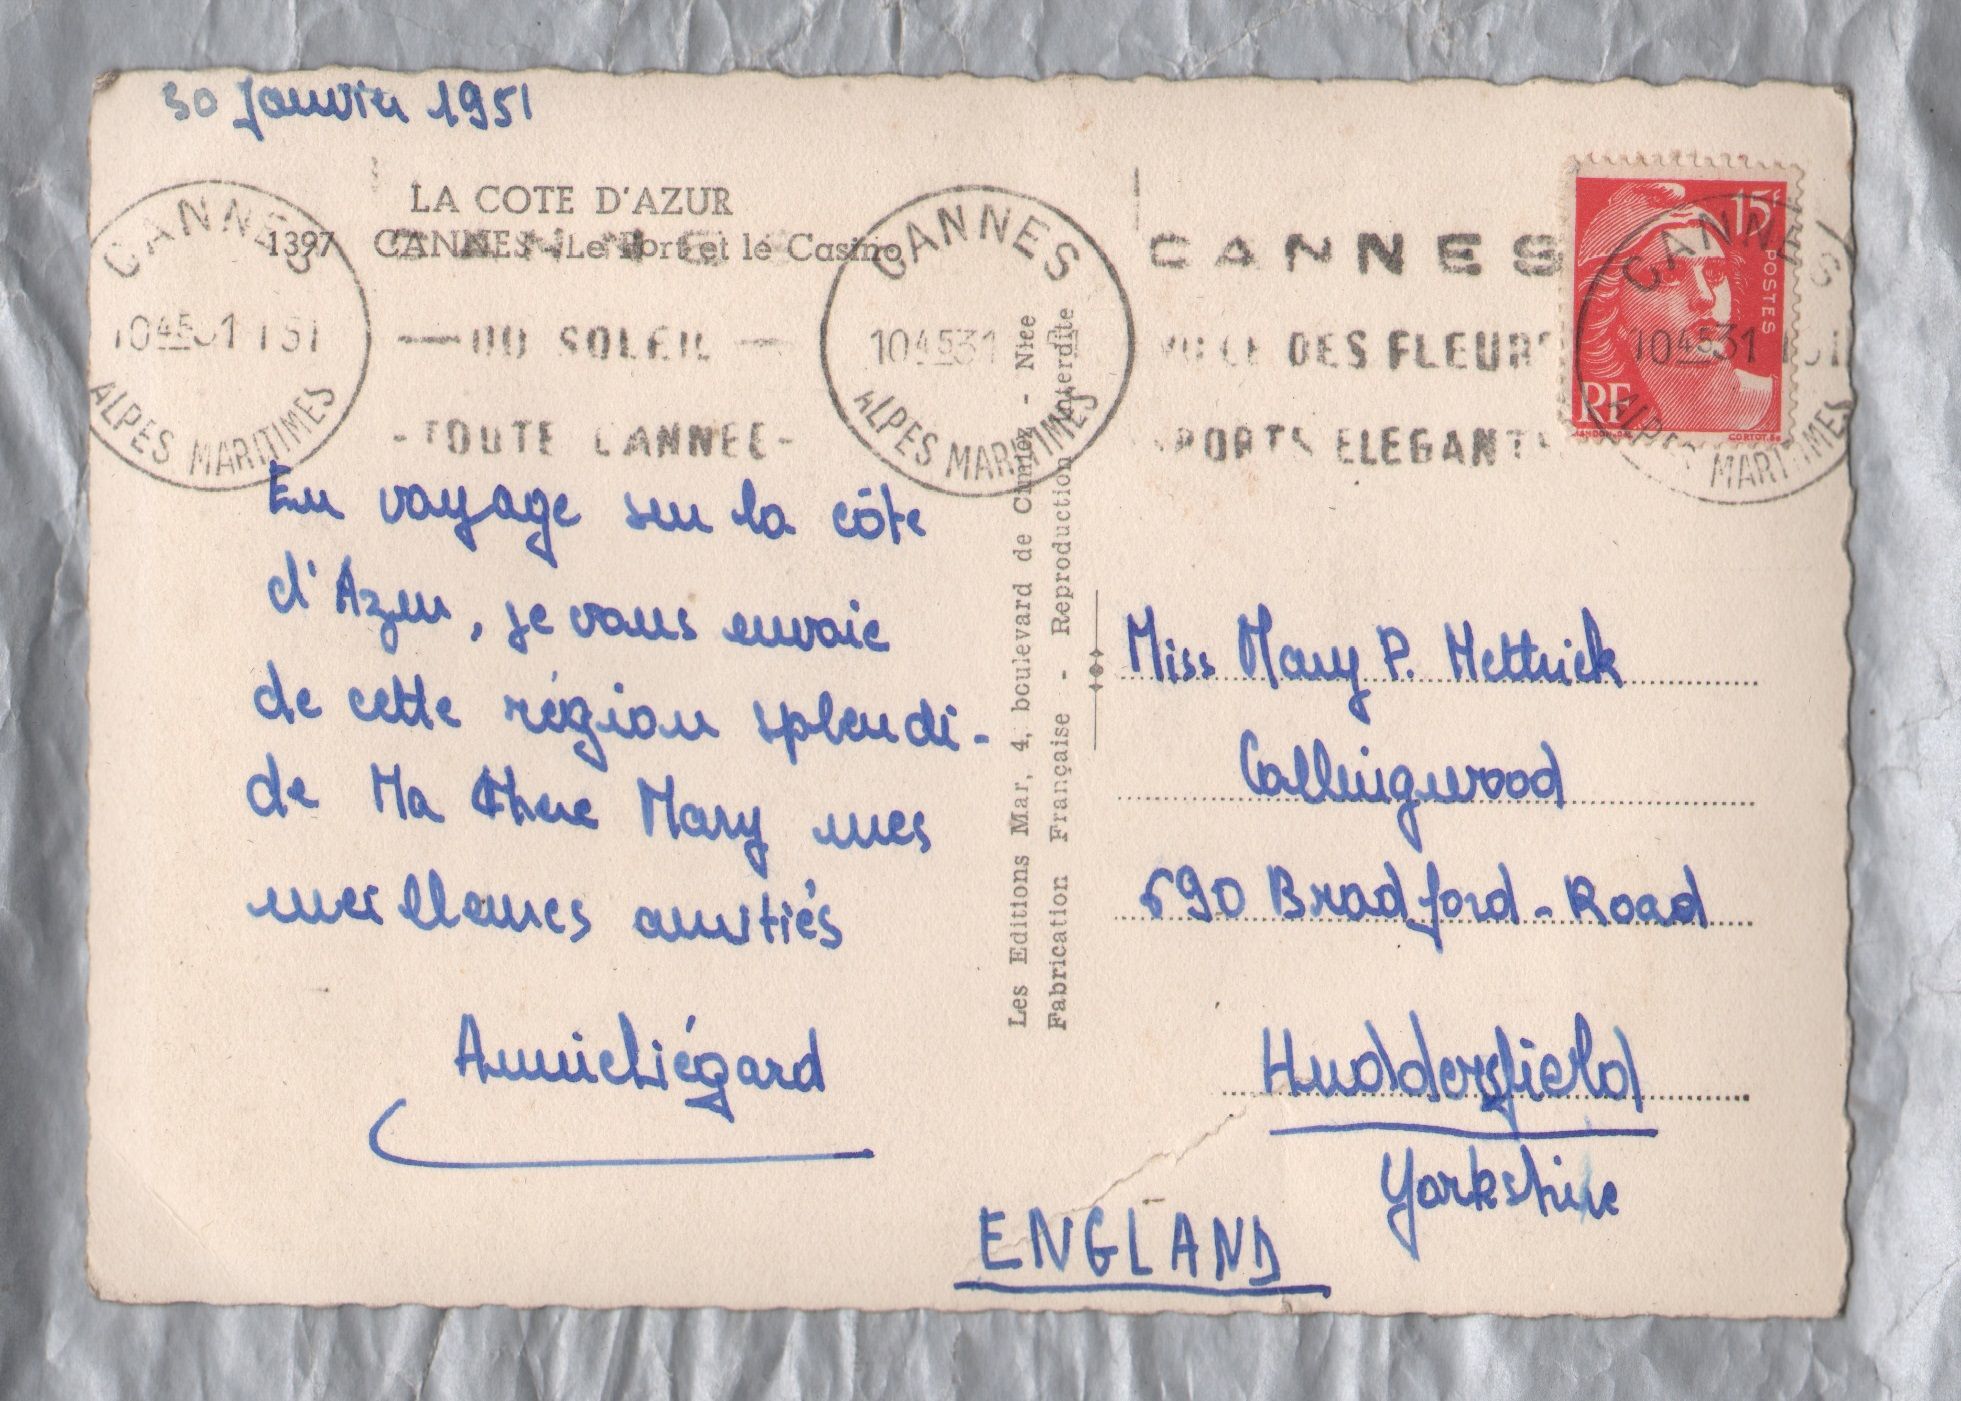 30 Janvier 1951
LA COTE D'AZUR
1397 CANNES - Le Port et le Casino
CANNES
10 45 31 1 51
ALPES MARITIMES
CANNES
DU SOLEIL
- TOUTE L'ANNEE -
CANNES
10 45 31
ALPES MARITIMES
CANNES
VILLE DES FLEURS
SPORTS ELEGANTS
15
POSTES
RF
GANDON-DEL
CORTOT.SC
CANNES
10 45 31
ALPES MARITIMES
En voyage sur la côte
d'Azur, je vous envoie
de cette région splendi-
de Ma Chere Mary mes
meilleures amitiés
Annie Liégard
Les Editions Mar, 4, boulevard de Cimiez - Nice
Fabrication Française - Reproduction interdite
Miss Mary P. Mettrick
Collingwood
690 Bradford-Road
Huddersfield
Yorkshire
ENGLAND